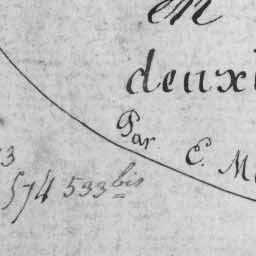 en
deux
Par E. M
3
574 533 bis